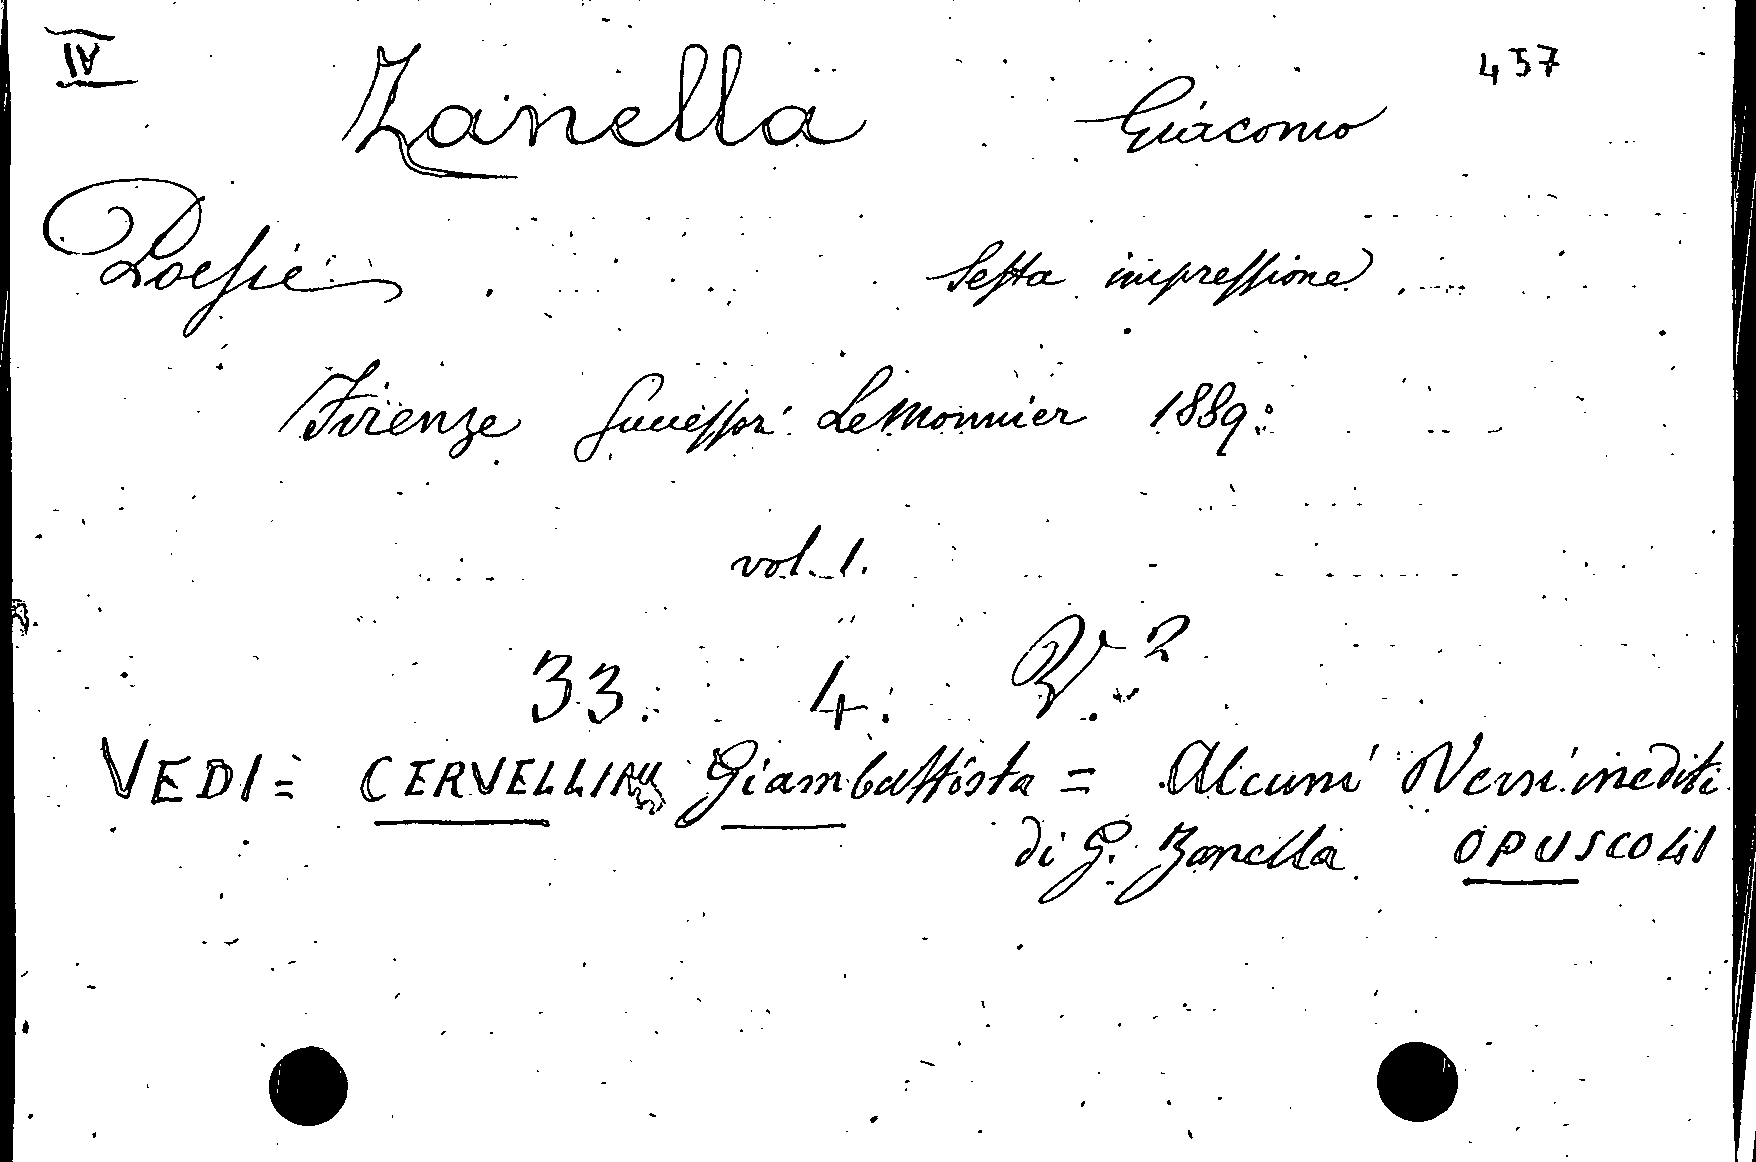 IV 457
Zanella Giacomo
Poesie Sesta impressione
Firenze Successori Le Monnier 1889:
vol. 1.
33. 4. V.2
VEDI = Giambattista = Alcuni Versi inediti
di G. Zanella OPUSCOLI